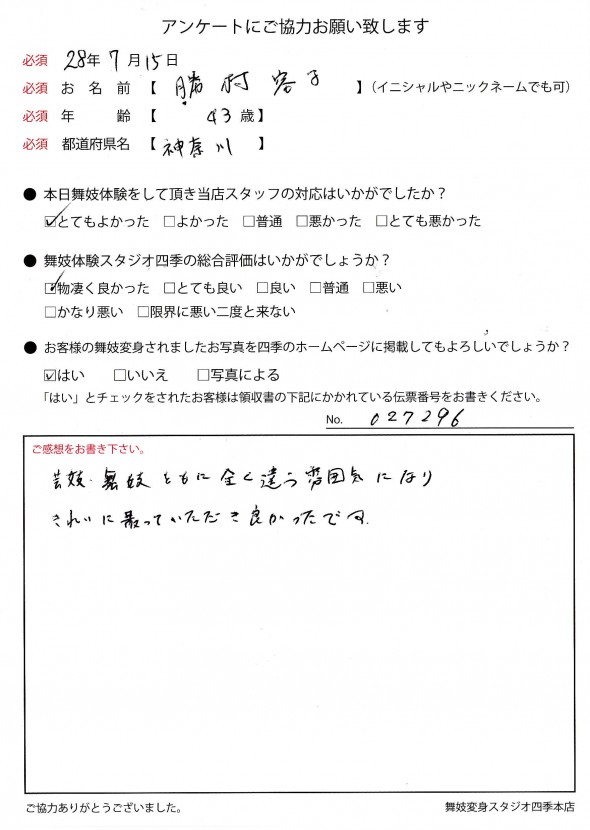 アンケートにご協力お願い致します
必須 28年 7月 15日
必須 お名前【勝村容子】(イニシャルやニックネームでも可)
必須 年齢【43歳】
必須 都道府県名【神奈川】
● 本日舞妓体験をして頂き当店スタッフの対応はいかがでしたか?
☑とてもよかった □よかった □普通 □悪かった □とても悪かった
● 舞妓体験スタジオ四季の総合評価はいかがでしょうか?
☑物凄く良かった □とても良い □良い □普通 □悪い
□かなり悪い □限界に悪い二度と来ない
● お客様の舞妓変身されましたお写真を四季のホームページに掲載してもよろしいでしょうか?
☑はい □いいえ □写真による
「はい」とチェックをされたお客様は領収書の下記にかかれている伝票番号をお書きください。
No. 027296
ご感想をお書き下さい。
芸妓・舞妓ともに全く違う雰囲気になり
きれいに撮っていただき良かったです.
ご協力ありがとうございました。 舞妓変身スタジオ四季本店